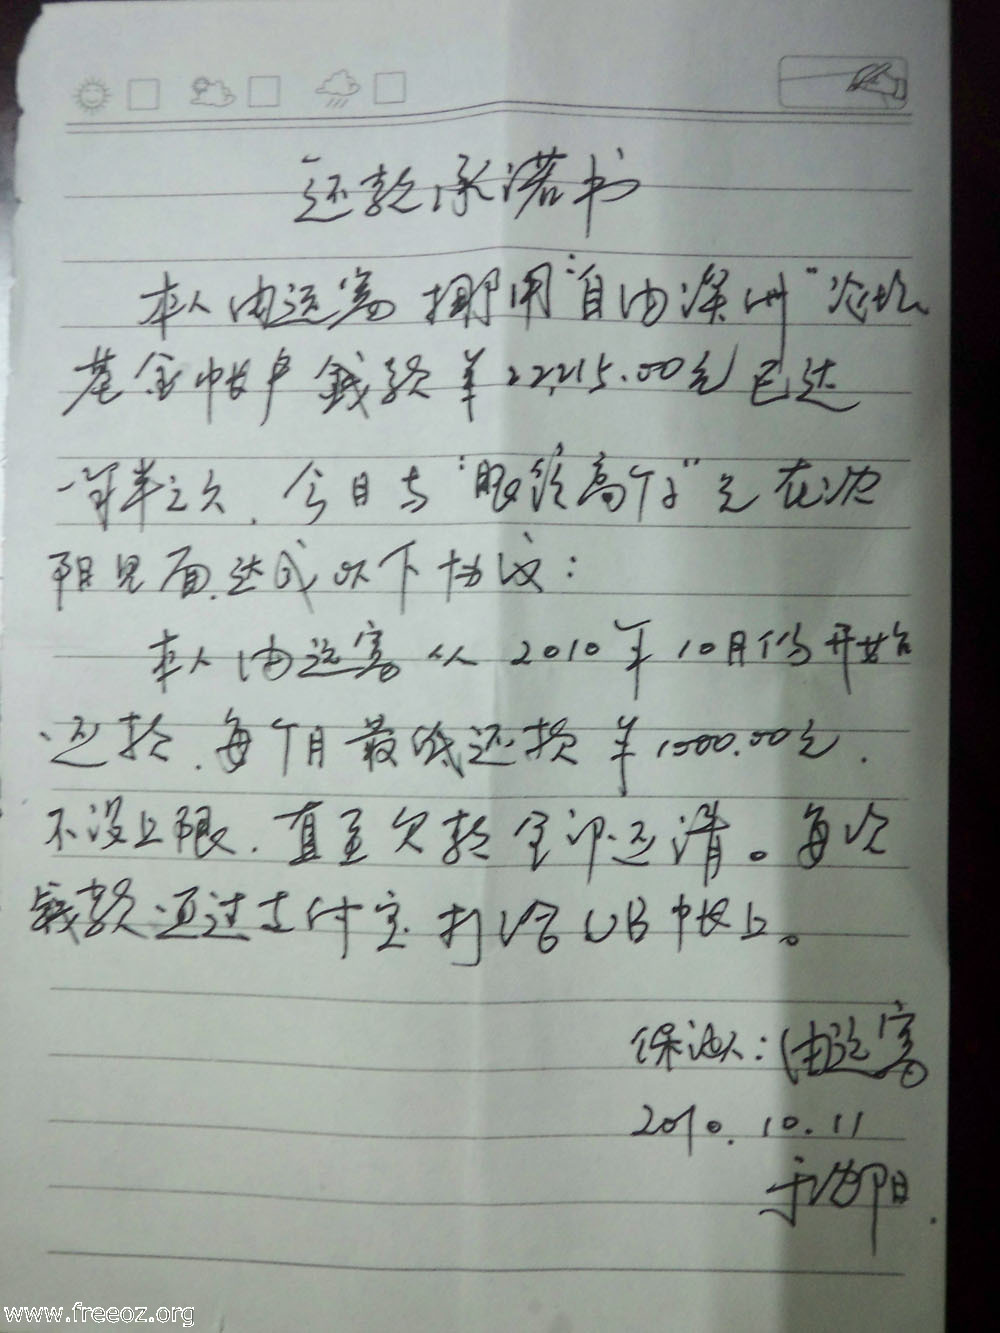 还款承诺书
本人由运骞挪用"自由澳洲"论坛
基金帐户钱款￥22,215.00元已达
一年半之久，今日与"眼镜高个子"兄在沈
阳见面，达成以下协议：
本人由运骞从2010年10月份开始
还款，每个月最低还款￥1000.00元，
不设上限，直至欠款全部还清。每次
钱款通过支付宝打给UB帐上。
保证人：由运骞
2010.10.11
于沈阳
www.freeoz.org